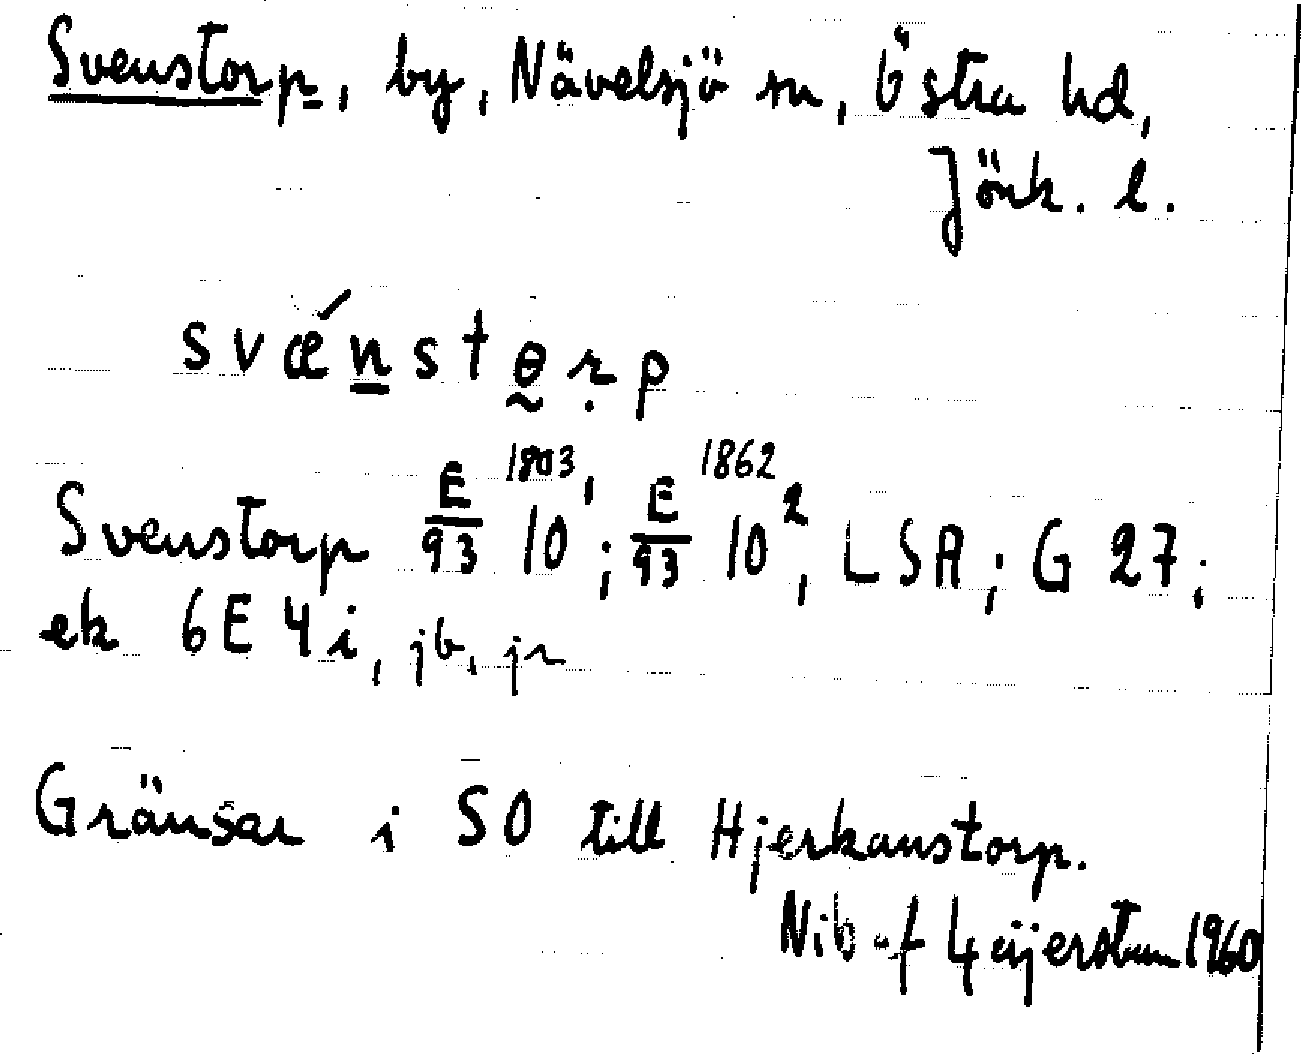 Svenstorp, by, Nävelsjö sn, Östra hd,
Jönk. l.
svǽnstɵrp
Svenstorp E/93 1803 10¹; E/93 1862 10², LSA; G 27;
ek 6E 4i, jb, jr
Gränsar i SO till Hjerkanstorp.
1960